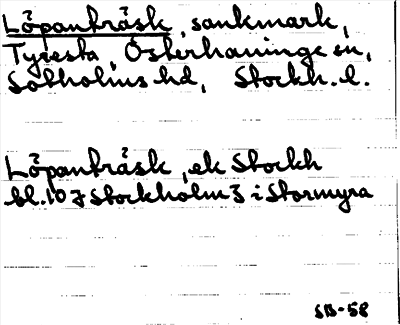 Löpanträsk, sankmark,
Tyresta, Österhaninge sn,
Sotholms hd, Stockh. l.
Löpanträsk, ek Stockh
bl. 107 Stockholm 3 i Stormyra
SB-58